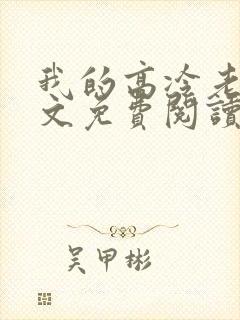 我的高冷老
文免費閱讀
吴甲彬